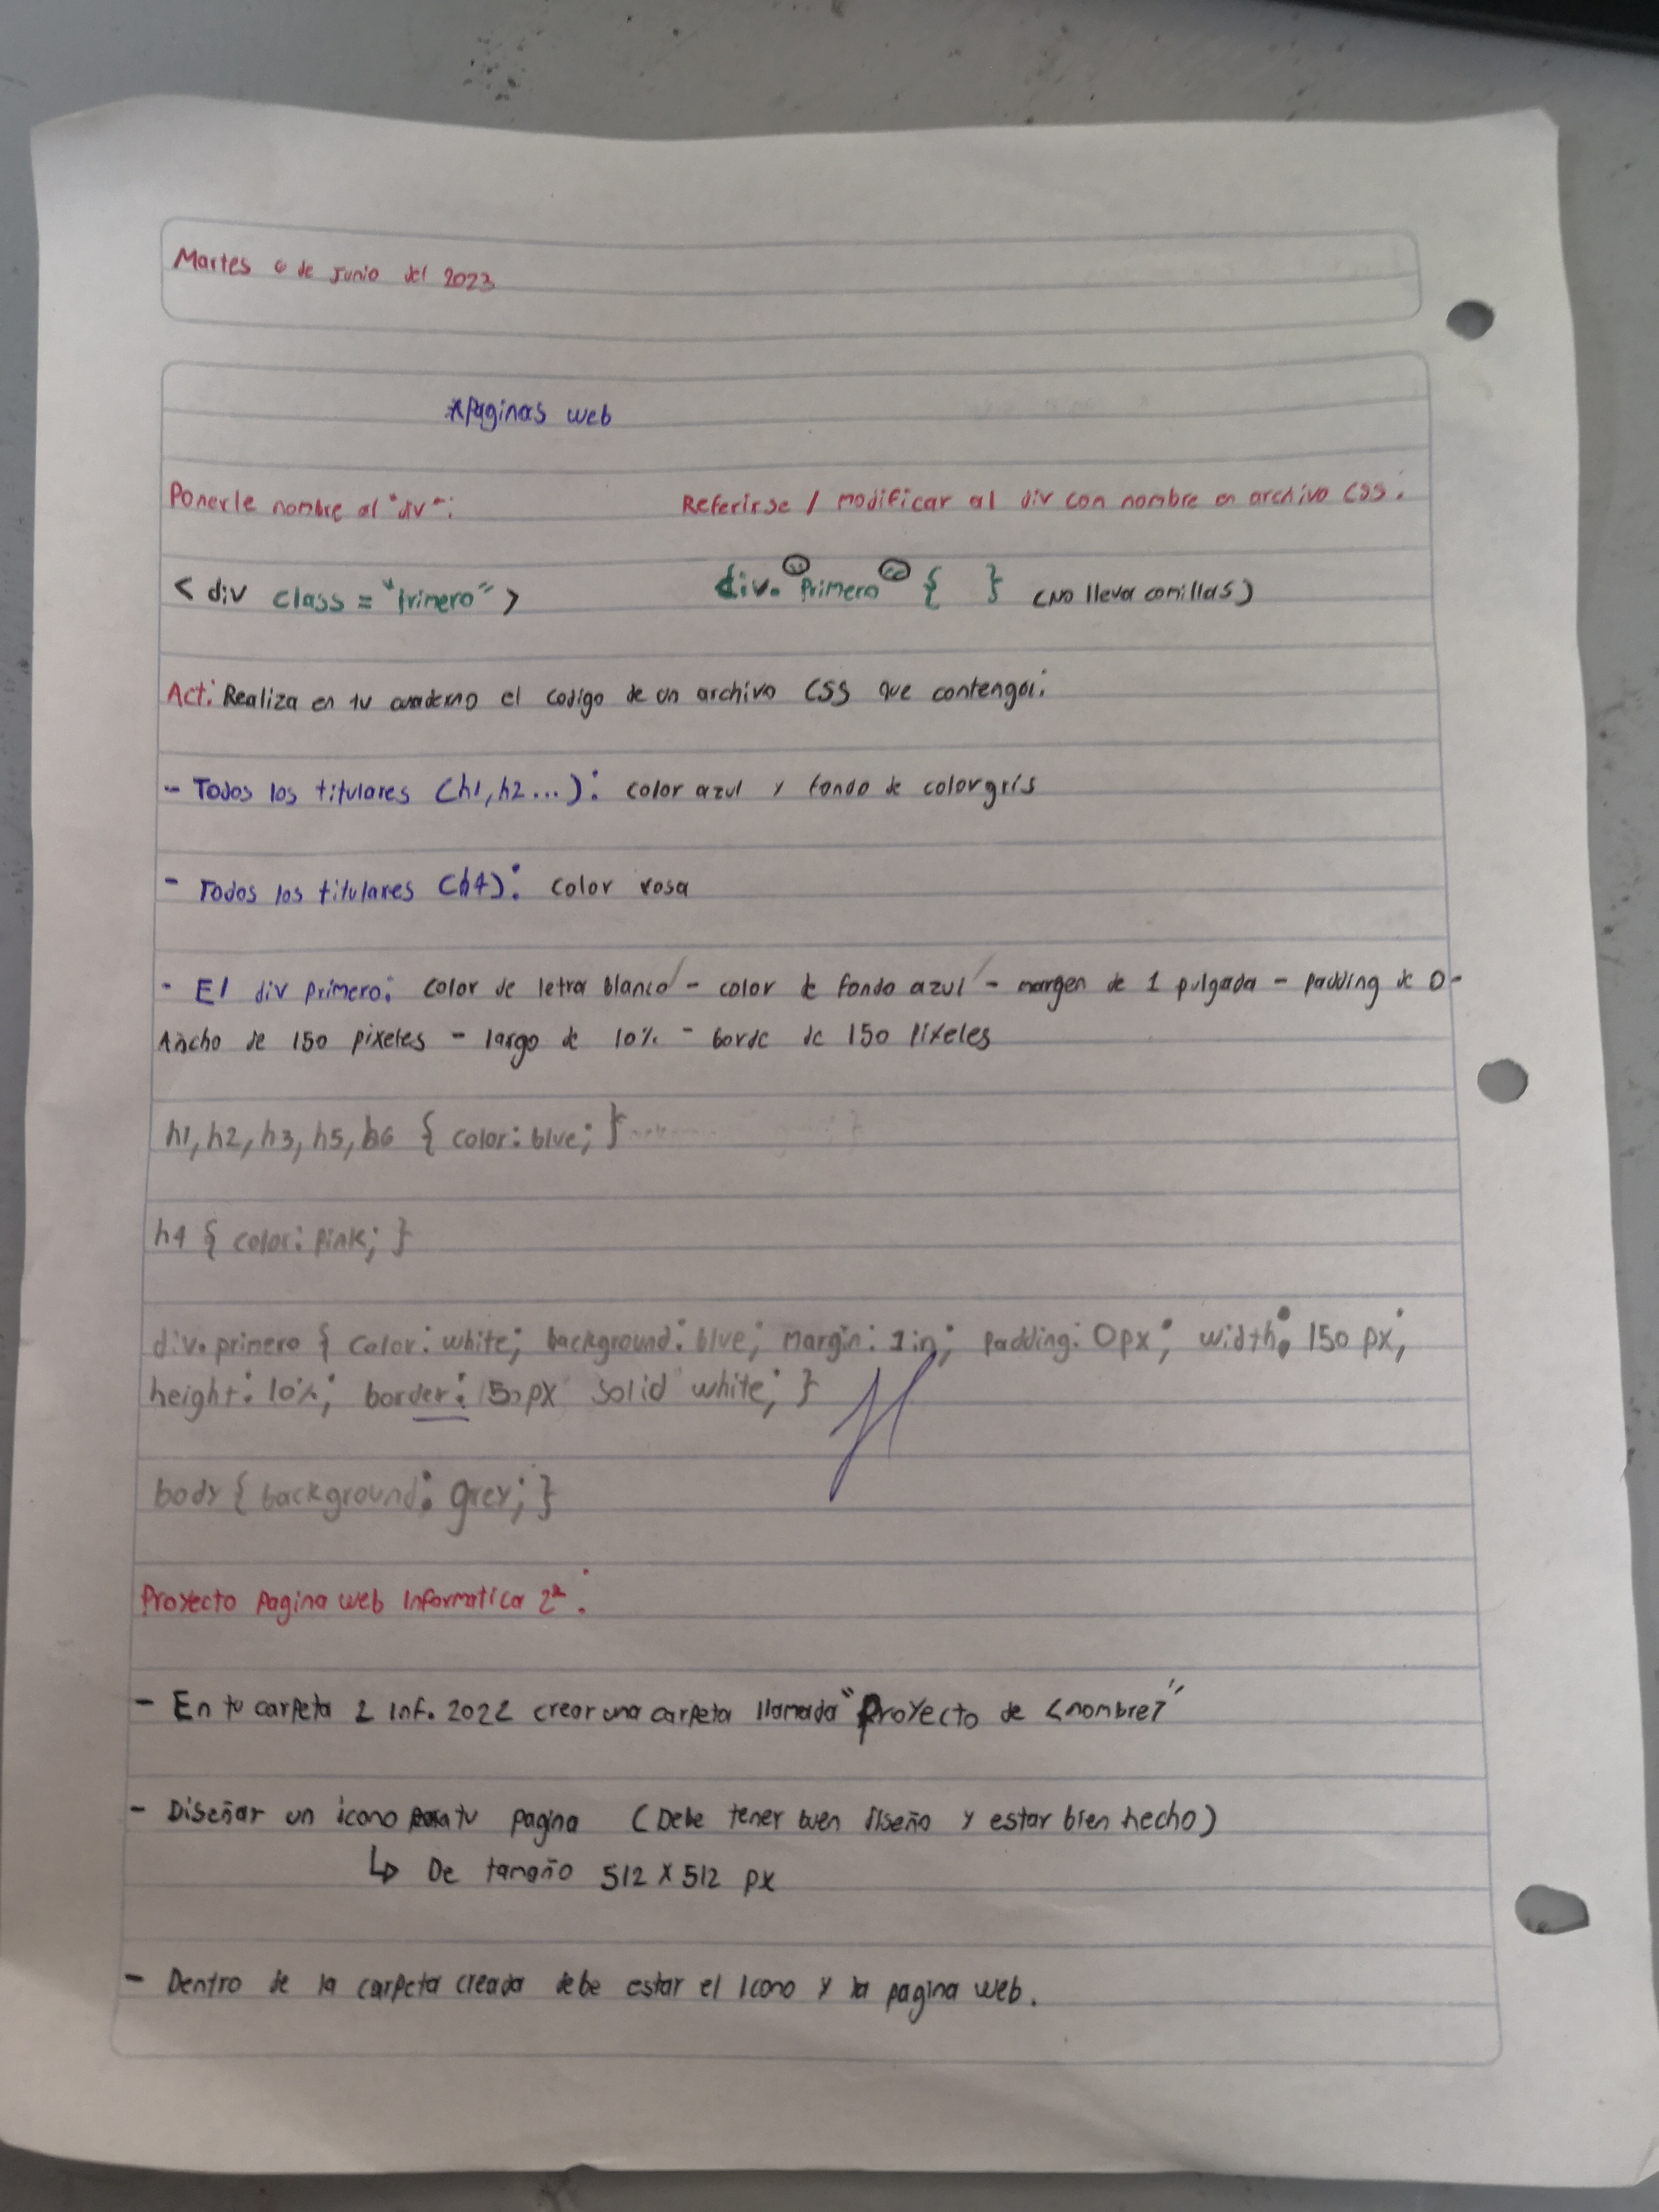 Martes 6 de Junio del 2023
*Paginas web
Ponerle nombre al "div":
Referirse / modificar al div con nombre en archivo CSS:
<div class="Primero">
div. Primero { } (No lleva comillas)
Act: Realiza en tu cuaderno el codigo de un archivo CSS que contenga:
- Todos los titulares (h1, h2...): color azul y fondo de color gris
- Todos los titulares (h4): color rosa
- El div primero: color de letra blanco - color de fondo azul - margen de 1 pulgada - padding de 0 -
Ancho de 150 pixeles - largo de 10% - borde de 150 Pixeles
h1, h2, h3, h5, h6 { color: blue; }
h4 { color: pink; }
div.primero { color: white; background: blue; margin: 1in; padding: 0px; width: 150 px;
height: 10%; border: 150px solid white; }
body { background: grey; }
Proyecto Pagina web Informatica 2ª:
- En tu carpeta 2 inf. 2022 crear una carpeta llamada "Proyecto de <nombre>"
- Diseñar un icono para tu pagina (Debe tener buen diseño y estar bien hecho)
↳ De tamaño 512 x 512 px
- Dentro de la carpeta creada debe estar el Icono y la pagina web.